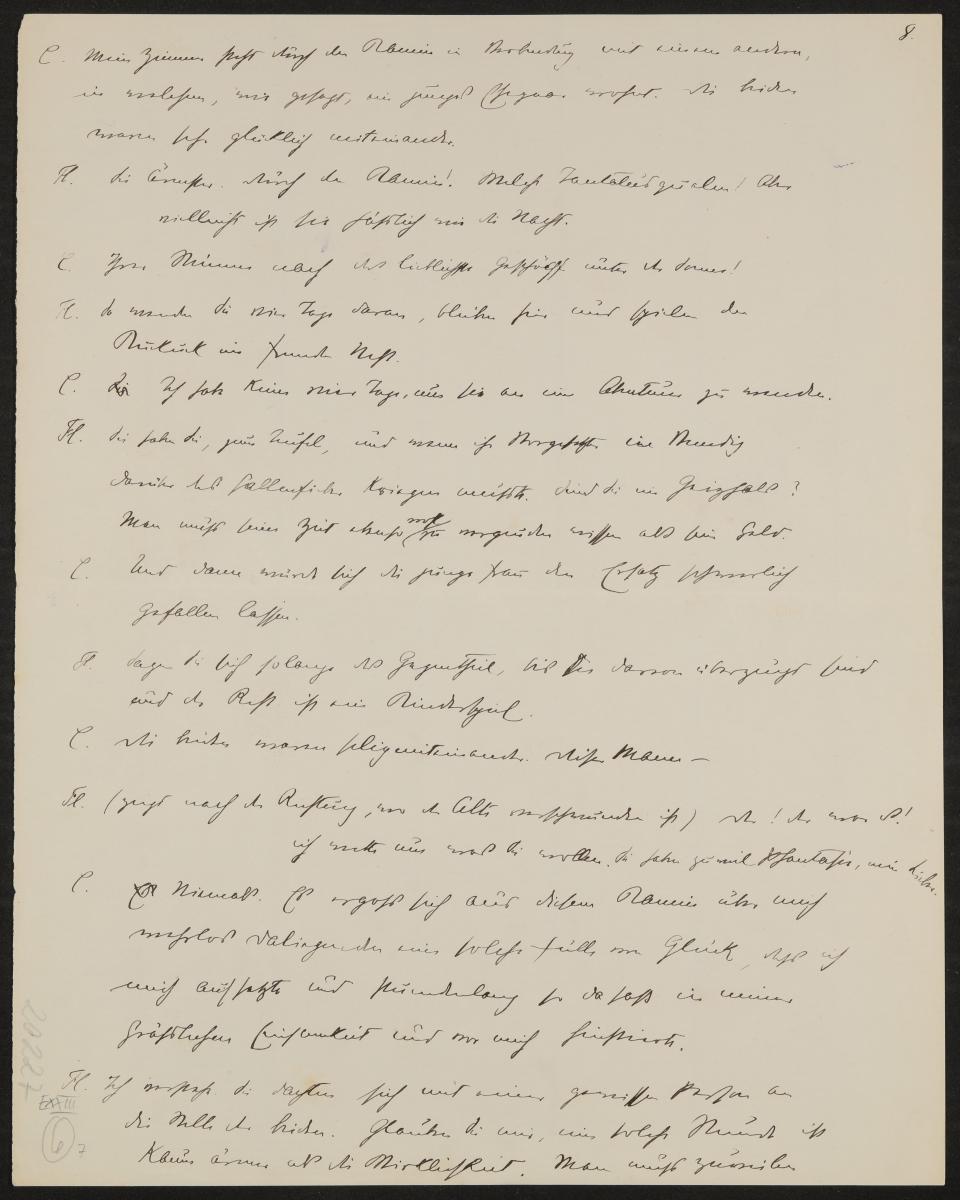 8.
C. Mein Zimmer steht durch den Kamin in Verbindung mit einem andern,
in welchem, wie gesagt, ein junges Ehepaar wohnt. Die beiden
waren sehr glücklich miteinander.
Fl. Sie Ärmster. Durch den Kamin! Welche Tantalusqualen! Aber
vielleicht ist sie häßlich wie die Nacht.
C. Ihrer Stimme nach das lieblichste Geschöpf unter der Sonne!
Fl. So wenden Sie vier Tage daran, bleiben hier und spielen den
Kuckuck im fremden Nest.
C. Ich habe keine vier Tage, um sie an ein Abenteuer zu wenden.
Fl. Die haben Sie, zum Teufel, und wenn ihr Vorgesetzter im Venedig
darüber das Gallenfieber kriegen müßte. Sind Sie ein Geizhals?
Man muß seine Zeit ebenso zu vergeuden wissen als sein Geld.
C. Und dann würde sich die junge Frau den Ersatz schwerlich
gefallen lassen.
Fl. Sagen Sie sich solange das Gegentheil, bis Sie davon überzeugt sind
und der Rest ist ein Kinderspiel.
C. Die beiden waren selig miteinander. Dieser Mann –
Fl. (zeigt nach der Richtung, wo der Alte verschwunden ist) Der! Der war es!
ich wette um was Sie wollen. Sie haben zu viel Phantasie, mein Lieber.
C. Niemals. Es ergoß sich aus diesem Kamin über mich
wehrlos daliegenden eine solche Fülle von Glück, daß ich
mich aufsetzte und stundenlang so dasaß in meiner
gräßlichen Einsamkeit und vor mich hinstierte.
Fl. Ich verstehe. Sie dachten sich mit einer gewissen Person an
die Stelle der beiden. Glauben Sie mir, eine solche Stunde ist
kaum ärmer als die Wirklichkeit. Man muß zuweilen
20227
EXXIII
6
7